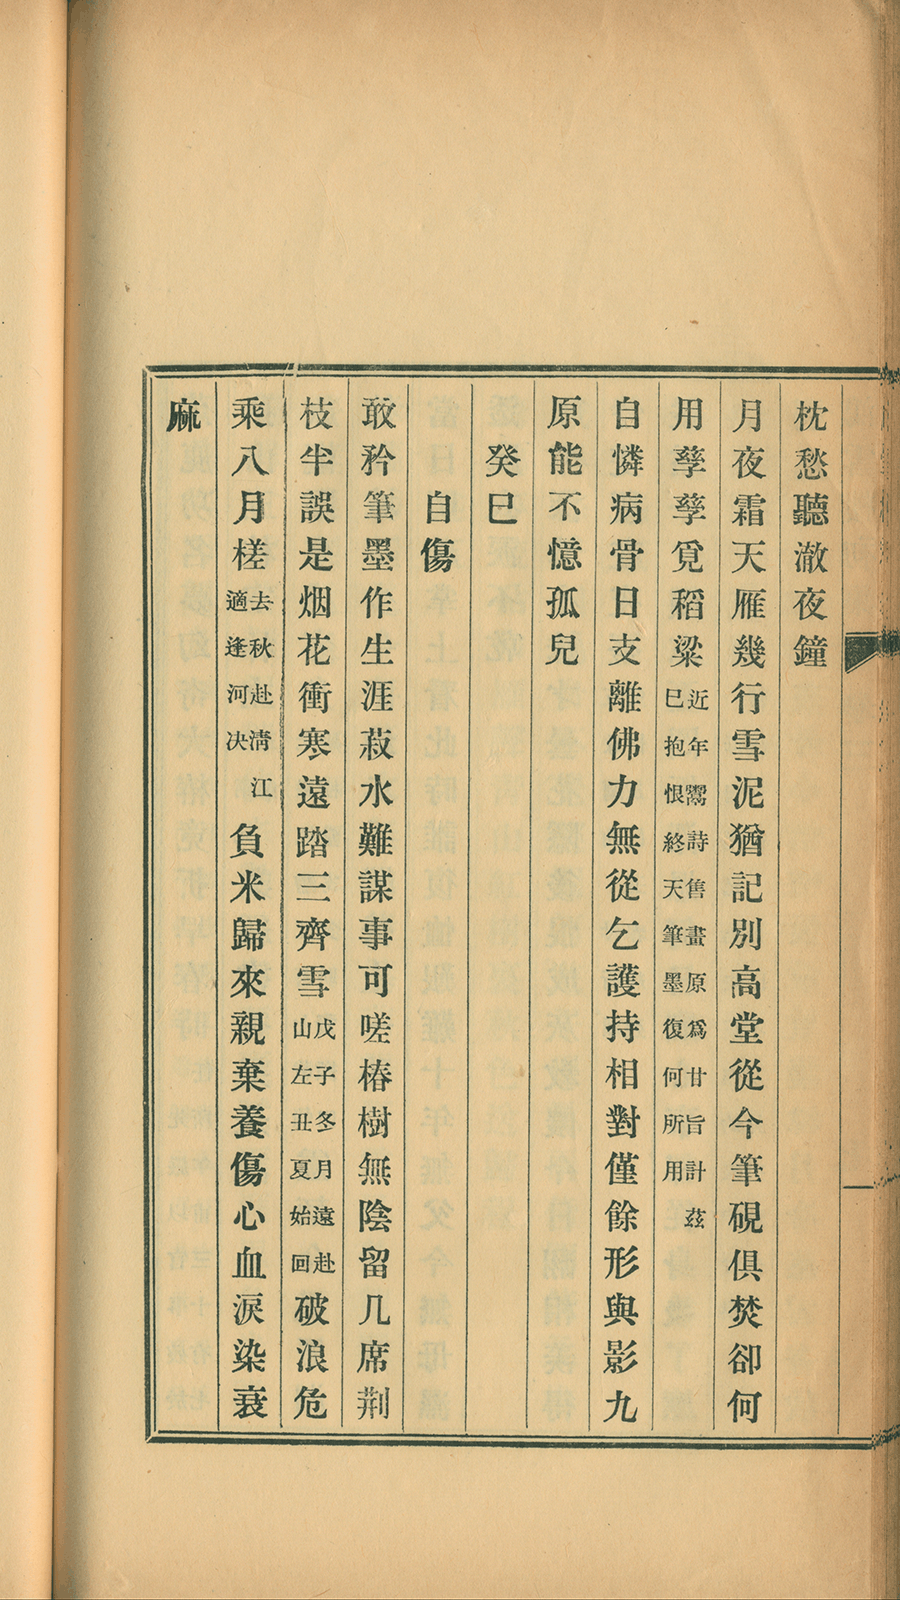 枕愁聽澈夜鐘
月夜霜天雁幾行雪泥猶記別高堂從今筆硯俱焚卻何
用孳孳覓稻粱近年鬻詩售畫原爲甘旨計茲已抱恨終天筆墨復何所用
自憐病骨日支離佛力無從乞護持相對僅餘形與影九
原能不憶孤兒
癸巳
自傷
敢矜筆墨作生涯菽水難謀事可嗟椿樹無陰留几席荆
枝半誤是烟花衝寒遠踏三齊雪戊子冬月遠赴山左丑夏始回破浪危
乘八月槎去秋赴淸江適逢河决負米歸來親棄養傷心血淚染衰
麻